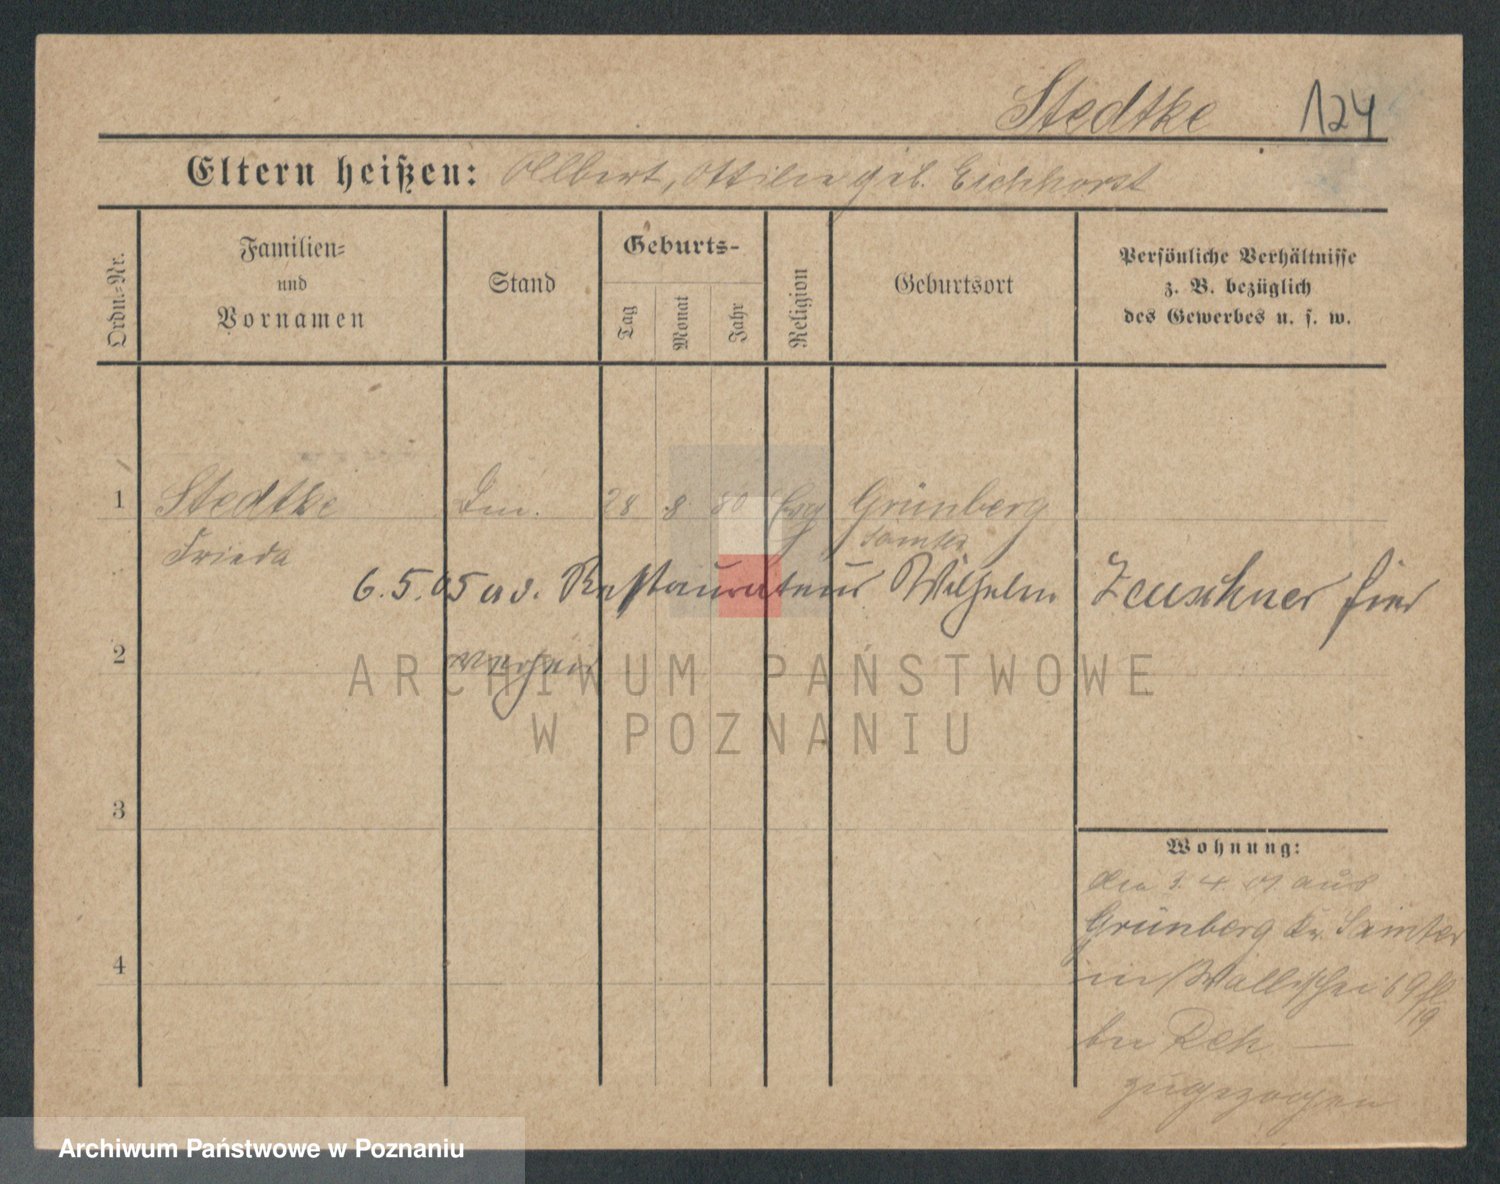 Stedtke 124
Eltern heißen: Albert, Ottilie geb. Eichhorst
Ordn.-Nr.
Familien-
und
Vornamen
Stand
Geburts-
Tag
Monat
Jahr
Religion
Geburtsort
Persönliche Verhältnisse
z. B. bezüglich
des Gewerbes u. s. w.
1 Stedtke 28 8 80 Evg Grünberg
Frieda Samter
6.5.05 a. d. Restaurateur Wilhelm Zeuschner hier
2
verheir
3
4
Wohnung:
den 3. 4. 01 aus
Grünberg Kr. Samter
in Wallischei 69
bei Reh —
zugezogen
ARCHIWUM PAŃSTWOWE
W POZNANIU
Archiwum Państwowe w Poznaniu